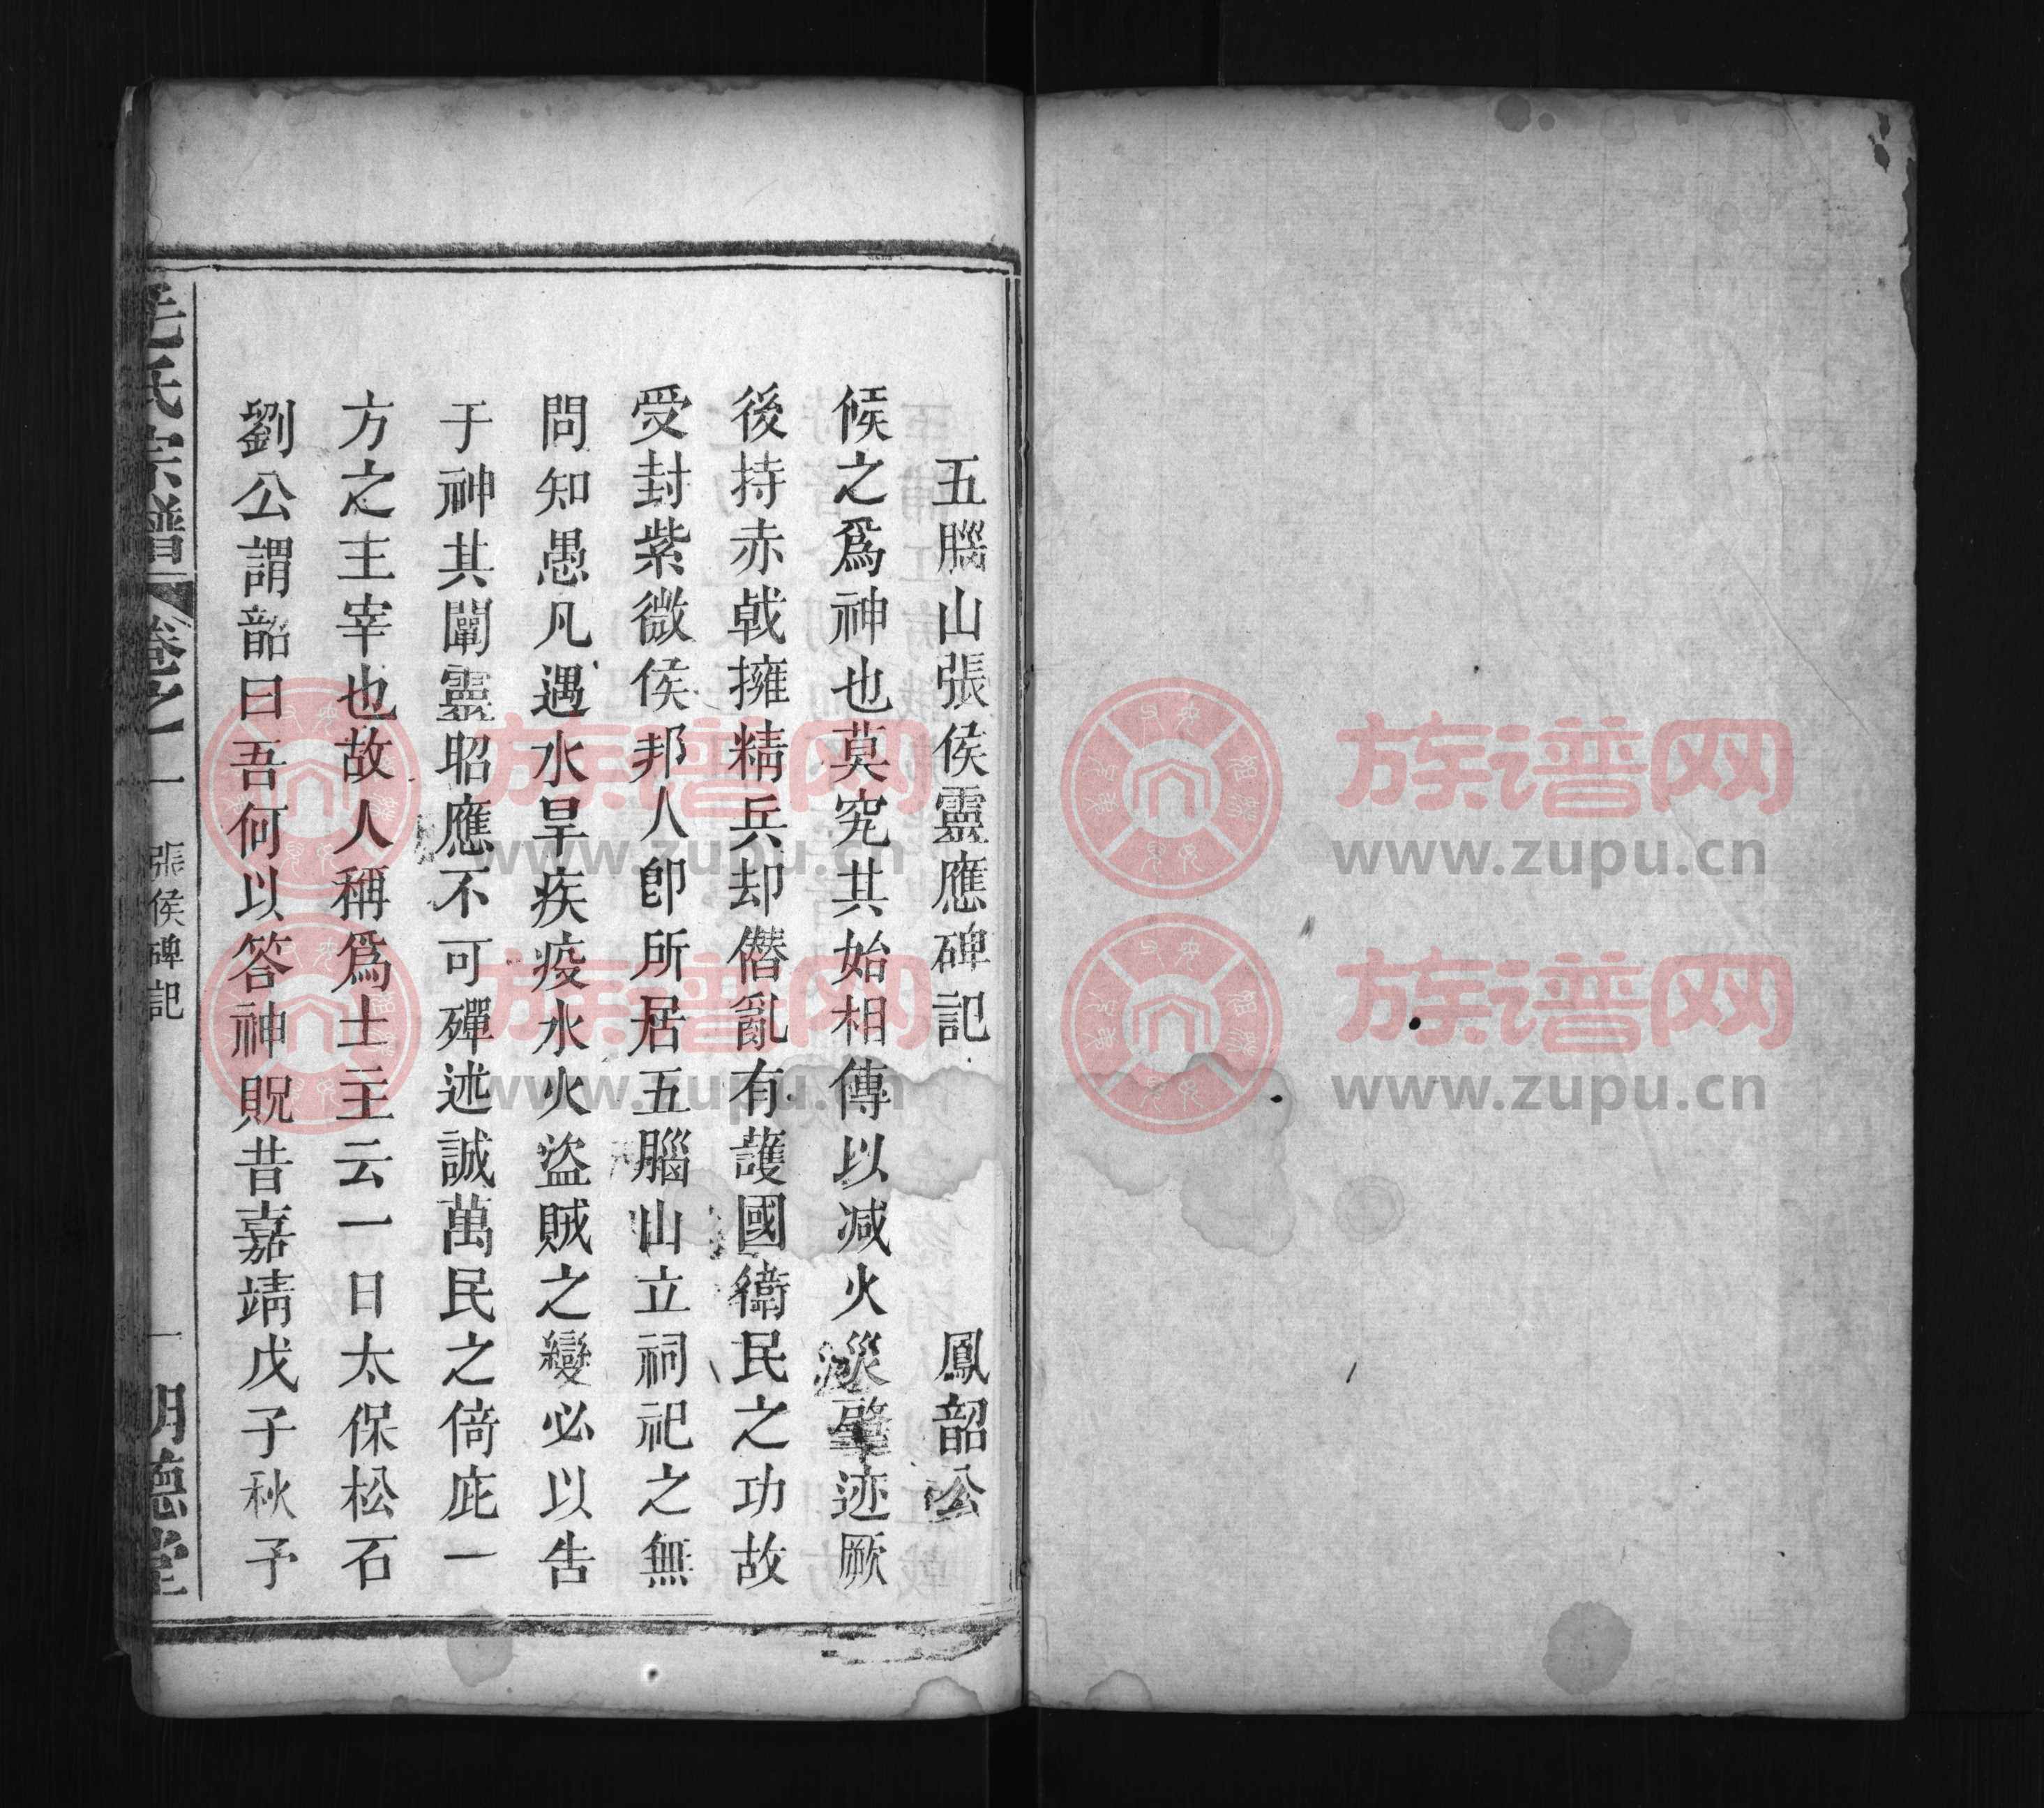 五腦山張侯靈應碑記　鳳韶公
候之爲神也莫究其始相傳以减火災肇迹厥
後持赤戟擁精兵却僭亂有護國衛民之功故
受封紫微侯邦人卽所居五腦山立祠祀之無
問知愚凡遇水旱疾疫水火盜賊之變必以告
于神其闡靈昭應不可殫述誠萬民之倚庇一
方之主宰也故人稱爲土主云一日太保松石
劉公謂韶曰吾何以答神貺昔嘉靖戊子秋予
氏宗譜 卷之一 張侯碑記 一 明德堂
族谱网
www.zupu.cn
族谱网
www.zupu.cn
族谱网
www.zupu.cn
族谱网
www.zupu.cn